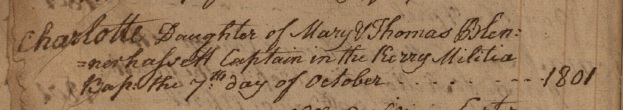 Charlotte Daughter of Mary & Thomas Blen:
=nerhassett Captain in the Kerry Militia
Bap: the 7th day of October - - - - - - - - 1801